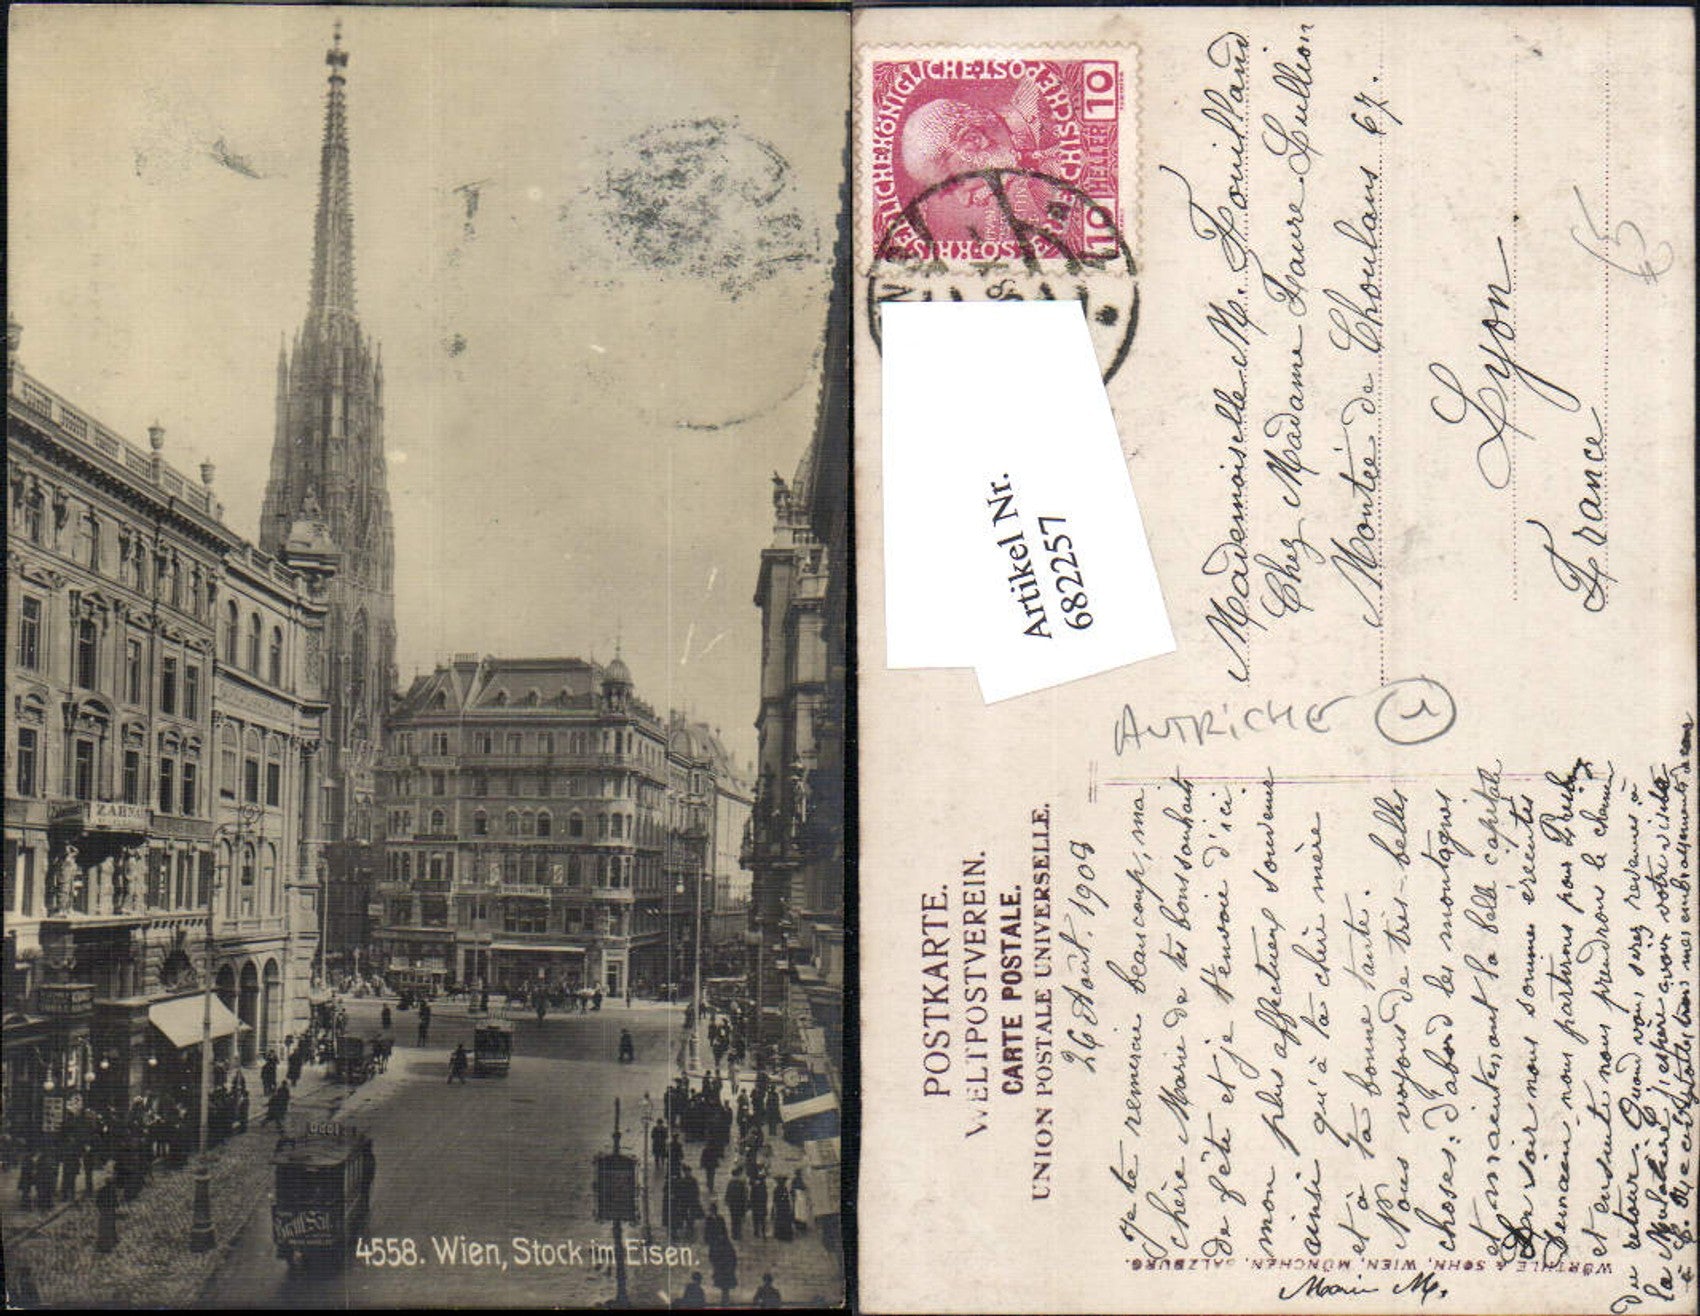 ZARNA
4558. Wien, Stock im Eisen.
KAISERLICHE KÖNIGLICHE ÖSTERREICHISCHE POST
10 HELLER 10
Artikel Nr.
682257
Mademoiselle M. Fouilland
Chez Madame Faure Lullion
Montée de Choulans 67.
Lyon
France
65
AUTRICHE
POSTKARTE.
WELTPOSTVEREIN.
CARTE POSTALE.
UNION POSTALE UNIVERSELLE.
26 Août. 1908
Je te remercie beaucoup, ma
chère Marie de tes bons souhaits
de fête et je t'envoie d'ici
mon plus affectueux souvenir
ainsi qu'à ta chère mère
et à ta bonne tante.
Nous voyons de très-belles
choses: d'abord les montagnes
et maintenant la belle capitale
Ce soir nous sommes éreintés
Demain nous partirons pour
et ensuite nous prendrons le chemin
du retour. Quand vous serez revenues à
la Mulatière j'espère avoir votre visite
à toutes trois mes embrassements
Marie M.
WÜRTHLE & SOHN, WIEN, MÜNCHEN, SALZBURG.